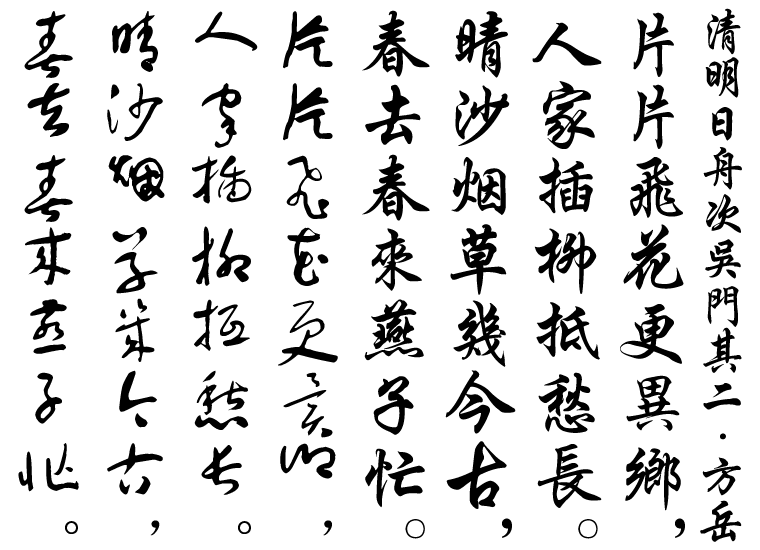 清明日舟次吳門其二·方岳
片片飛花更異鄉，
人家插柳抵愁長。
晴沙烟草幾今古，
春去春來燕子忙。
片片飛花更異鄉，
人家插柳抵愁長。
晴沙烟草幾今古，
春去春來燕子忙。